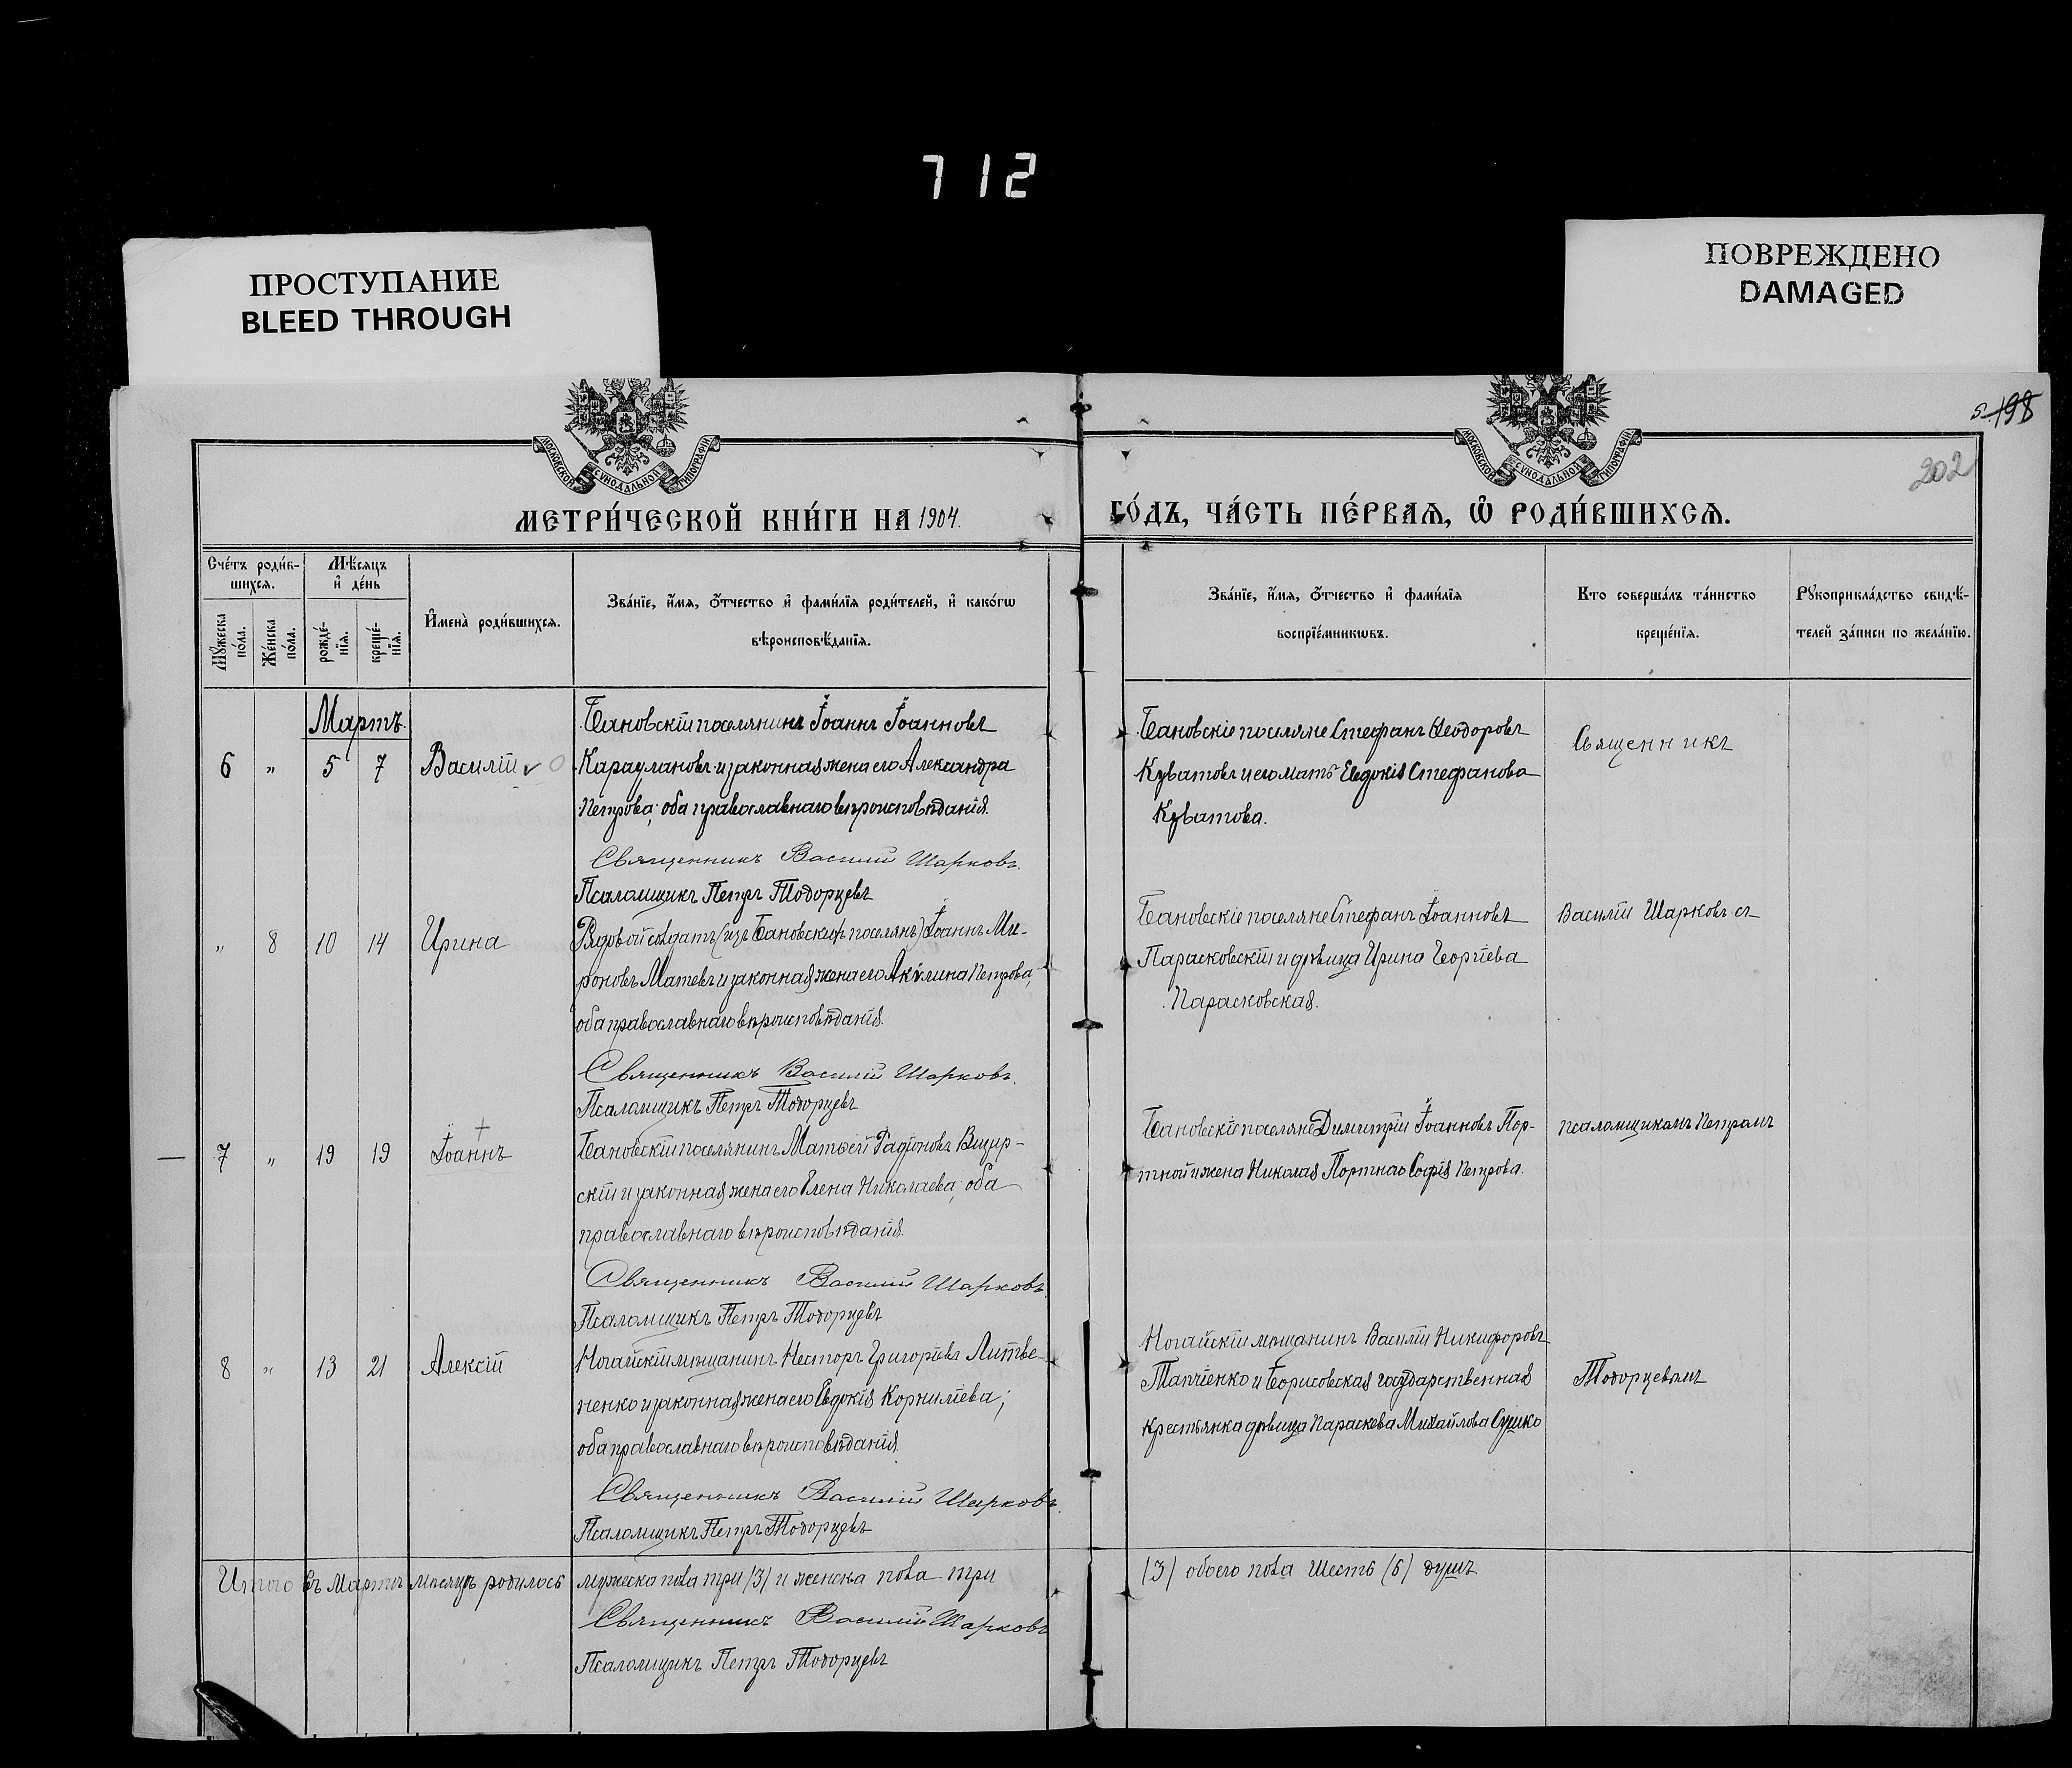 712
ПРОСТУПАНИЕ
BLEED THROUGH
ПОВРЕЖДЕНО
DAMAGED
198
202
МОСКОВСКОЙ СУНОДАЛЬНОЙ ТИПОГРАФІИ
МОСКОВСКОЙ СУНОДАЛЬНОЙ ТИПОГРАФІИ
МЕТРИ́ЧЕСКОЙ КНИ́ГИ НА 1904.
ГО́ДЪ, ЧА́СТЬ ПЕ́РВАѦ, Ѡ҆ РОДИ́ВШИХСѦ.
Сче́тъ роди́в-
шихсѧ.
Мꙋ́жеска по́ла.
Же́нска по́ла.
Мѣ́сѧцъ
и҆ де́нь
рожде́-нїѧ.
креще́-нїѧ.
И҆мена̀ роди́вшихсѧ.
Зва́нїе, и҆́мѧ, о҆́тчество и҆ фами́лїѧ роди́телей, и҆ како́гѡ
вѣроисповѣ́данїѧ.
Зва́нїе, и҆́мѧ, о҆́тчество и҆ фами́лїѧ
воспрїе́мникѡвъ.
Кто соверша́лъ та́инство
креще́нїѧ.
Рꙋкоприкла́дство свидѣ́-
телей за́писи по жела́нїю.
Мартъ.
6 „ 5 7 Василій
Бановскій поселянинъ Іоаннъ Іоанновъ
Араулановъ и законная жена его Александра
Петрова; оба православнаго вѣроисповѣданія.
Священникъ Василій Шарковъ.
Псаломщикъ Петръ Тодорцевъ
Бановскіе поселяне Стефанъ Ѳеодоровъ
Куватовъ и его мать Евдокія Стефанова
Куватова.
Священникъ
„ 8 10 14 Ирина
Рядовой солдатъ (изъ Бановскихъ поселянъ) Іоаннъ Ми-
роновъ Матевъ и законная жена его Акилина Петрова,
оба православнаго вѣроисповѣданія.
Священникъ Василій Шарковъ.
Псаломщикъ Петръ Тодорцевъ
Бановскіе поселяне Стефанъ Іоанновъ
Парасковскій и дѣвица Ирина Георгіева
Парасковская.
Василій Шарковъ съ
7 „ 19 19 Іоаннъ
Бановскій поселянинъ Матѳей Радіоновъ Вицир-
скій и законная жена его Елена Николаева; оба
православнаго вѣроисповѣданія.
Священникъ Василій Шарковъ.
Псаломщикъ Петръ Тодорцевъ
Бановскіе поселяне Димитрій Іоанновъ Пор-
тной и жена Николая Портнаго Софія Петрова.
псаломщикомъ Петромъ
8 „ 13 21 Алексій
Ногайскій мѣщанинъ Несторъ Григоріевъ Литве-
ненко и законная жена его Евдокія Корниліева;
оба православнаго вѣроисповѣданія.
Священникъ Василій Шарковъ.
Псаломщикъ Петръ Тодорцевъ
Ногайскій мѣщанинъ Василій Никифоровъ
Тапчіенко и Борисовская государственная
крестьянка дѣвица Параскева Михайлова Сушко
Тодорцевымъ
Итого въ Мартѣ мѣсяцѣ родилось мужеска пола три /3/ и женска пола три
/3/ обоего пола Шесть /6/ душъ
Священникъ Василій Шарковъ
Псаломщикъ Петръ Тодорцевъ